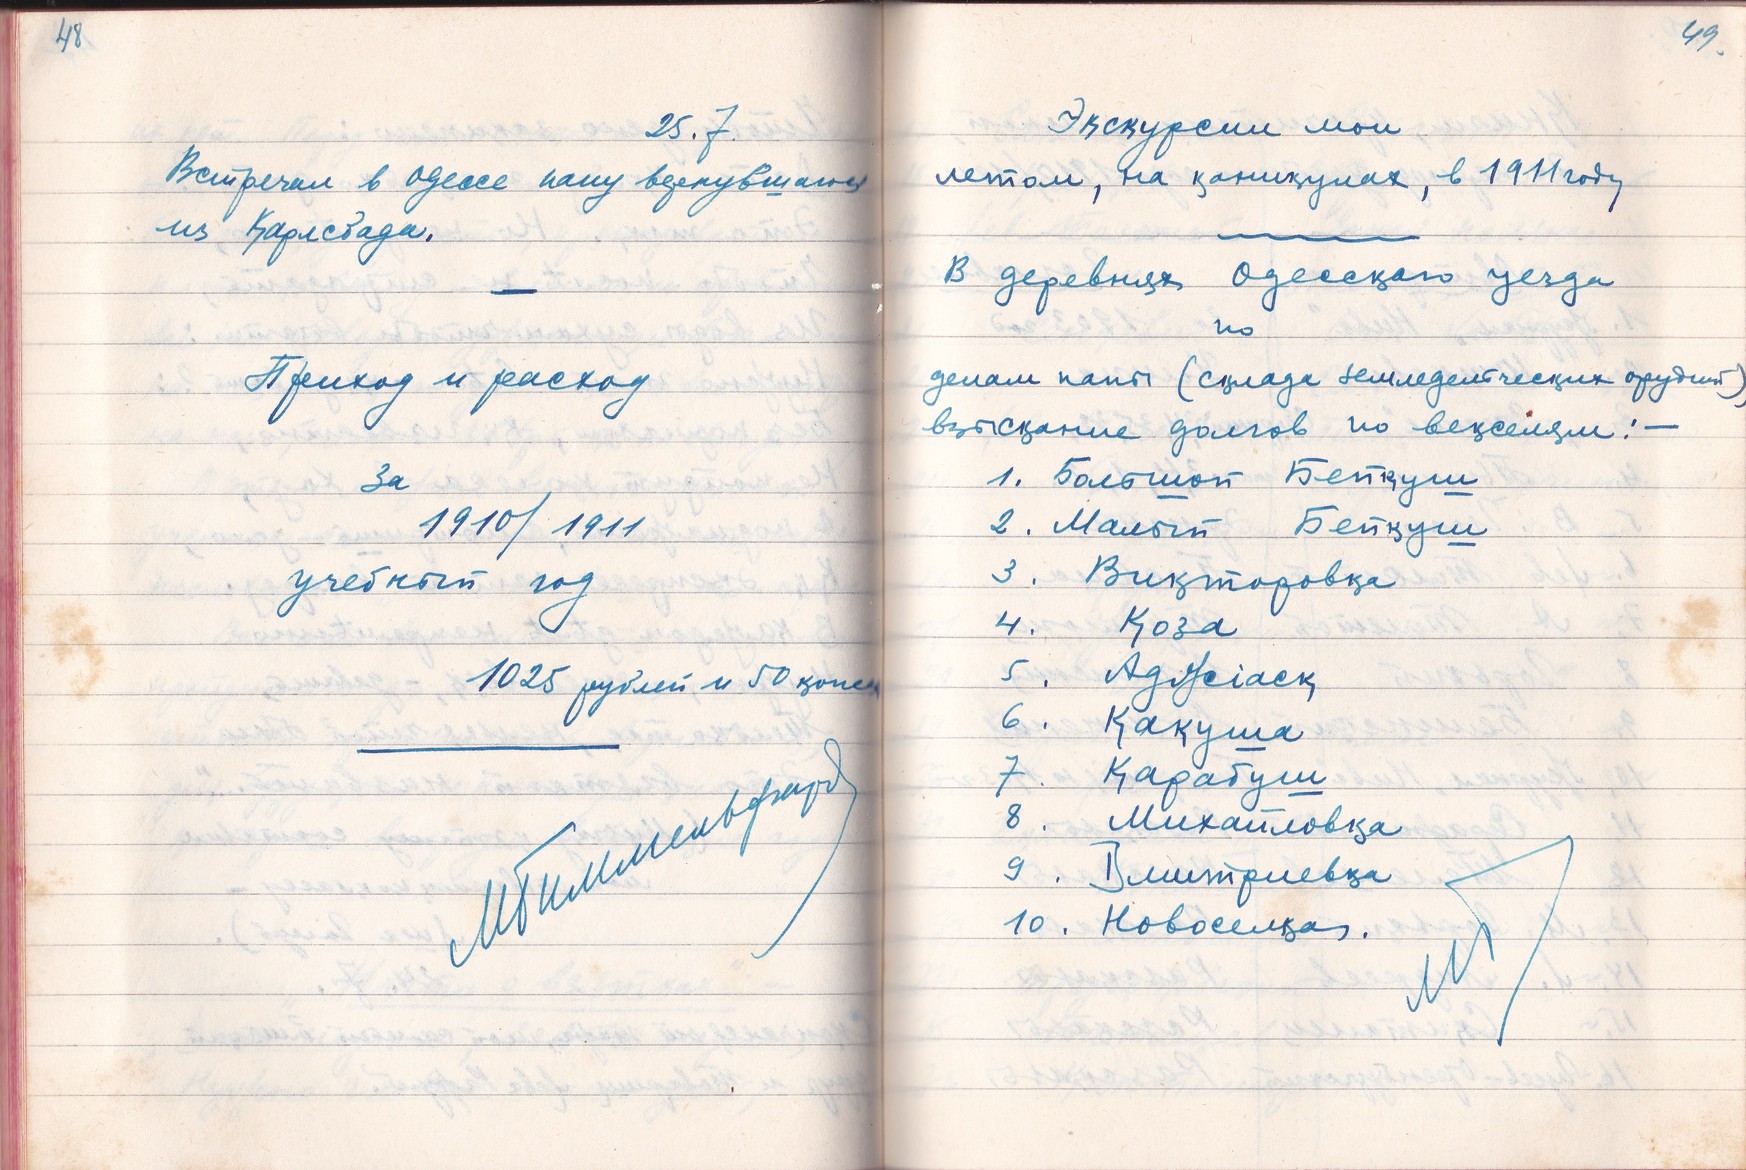 48
25.7.
Встречал в Одессе папу вернувшагося
из Карлсбада.
Приход и расход
За
1910/1911
учебный год
1025 рублей и 50 копеек
49.
Экскурсии мои
летом, на каникулах, в 1911 году
В деревнях Одесскаго уезда
по
делам папы (склада земледельческих орудий),
взыскание долгов по векселям: —
1. Большой Бейкуш
2. Малый Бейкуш
3. Викторовка
4. Коза
5. Аджіаск
6. Какуша
7. Карабуш
8. Михайловка
9. Дмитриевка
10. Новоселка.